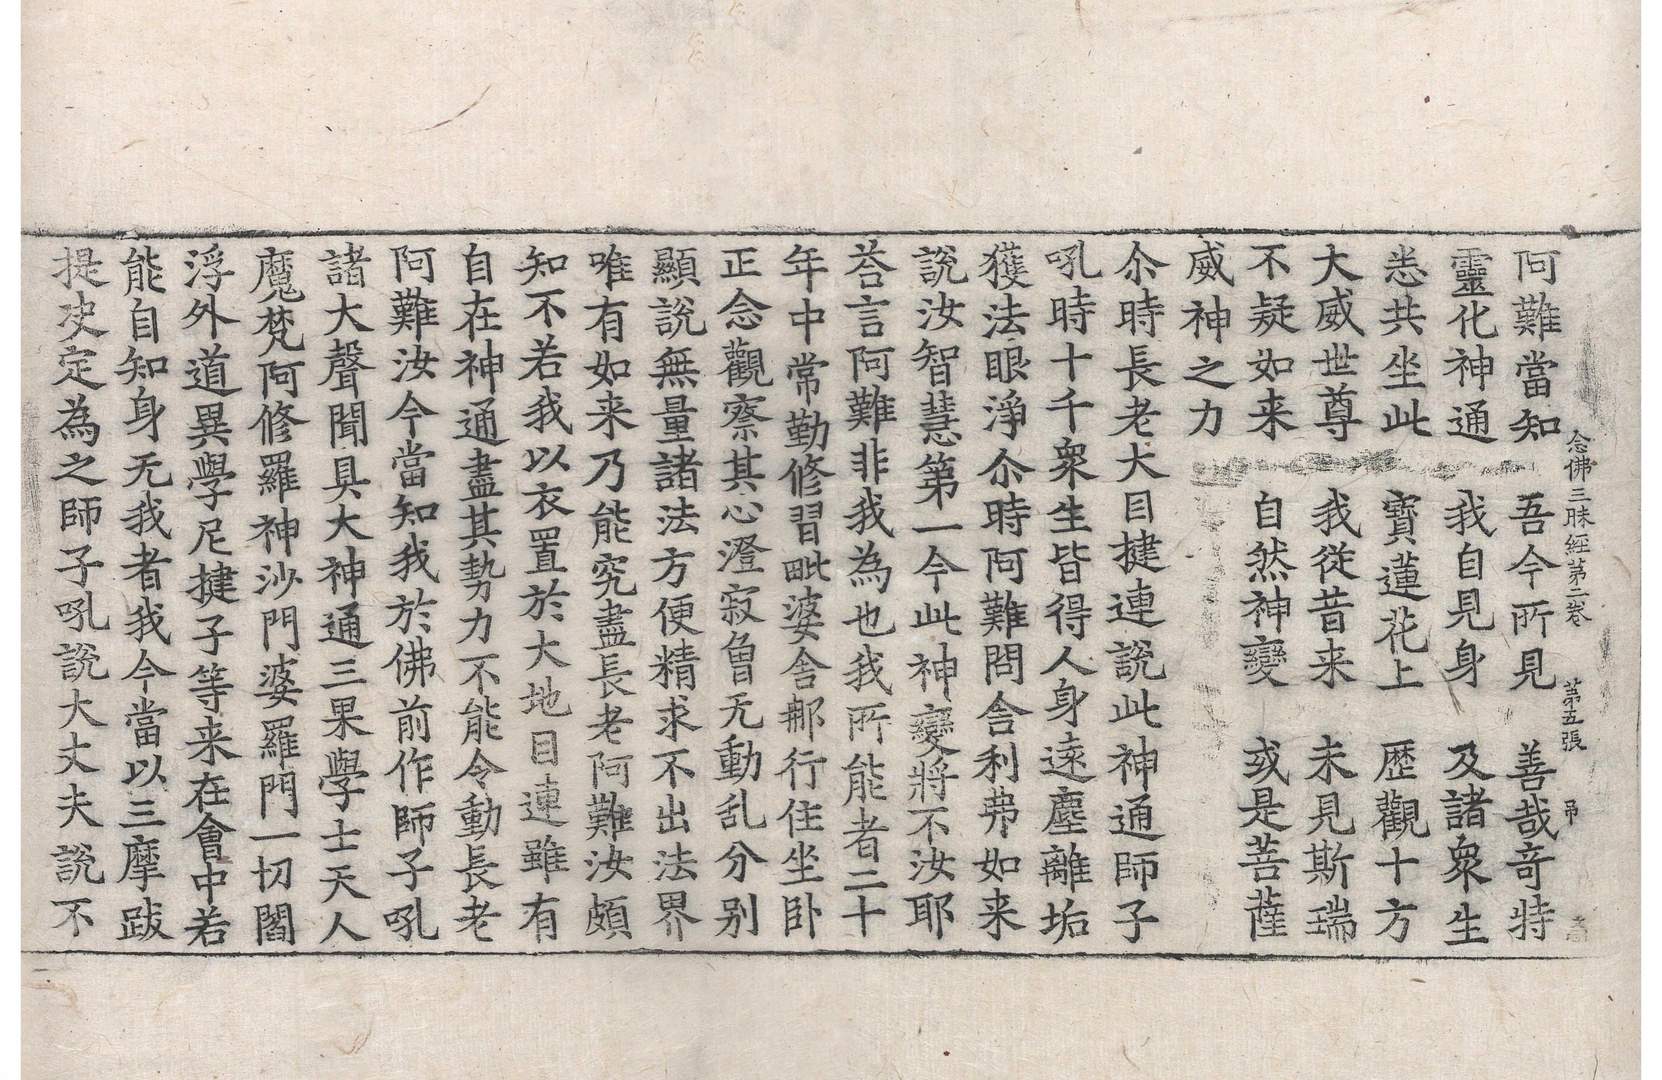 念佛三昧經第二卷 第五張 弔
阿難當知 吾今所見 善哉奇特
靈化神通 我自見身 及諸衆生
悉共坐此 寶蓮花上 歷觀十方
大威世尊 我從昔来 未見斯瑞
不疑如来 自然神變 或是菩薩
威神之力
尒時長老大目揵連說此神通師子
吼時十千衆生皆得人身遠塵離垢
獲法眼淨尒時阿難問舍利弗如来
說汝智慧第一今此神變將不汝耶
荅言阿難非我為也我所能者二十
年中常勤修習毗婆舍那行住坐卧
正念觀察其心澄寂曾无動乱分別
顯說無量諸法方便精求不出法界
唯有如来乃能究盡長老阿難汝頗
知不若我以衣置於大地目連雖有
自在神通盡其勢力不能令動長老
阿難汝今當知我於佛前作師子吼
諸大聲聞具大神通三果學士天人
魔梵阿修羅神沙門婆羅門一切閻
浮外道異學尼揵子等来在會中若
能自知身无我者我今當以三摩跋
提决定為之師子吼說大丈夫說不